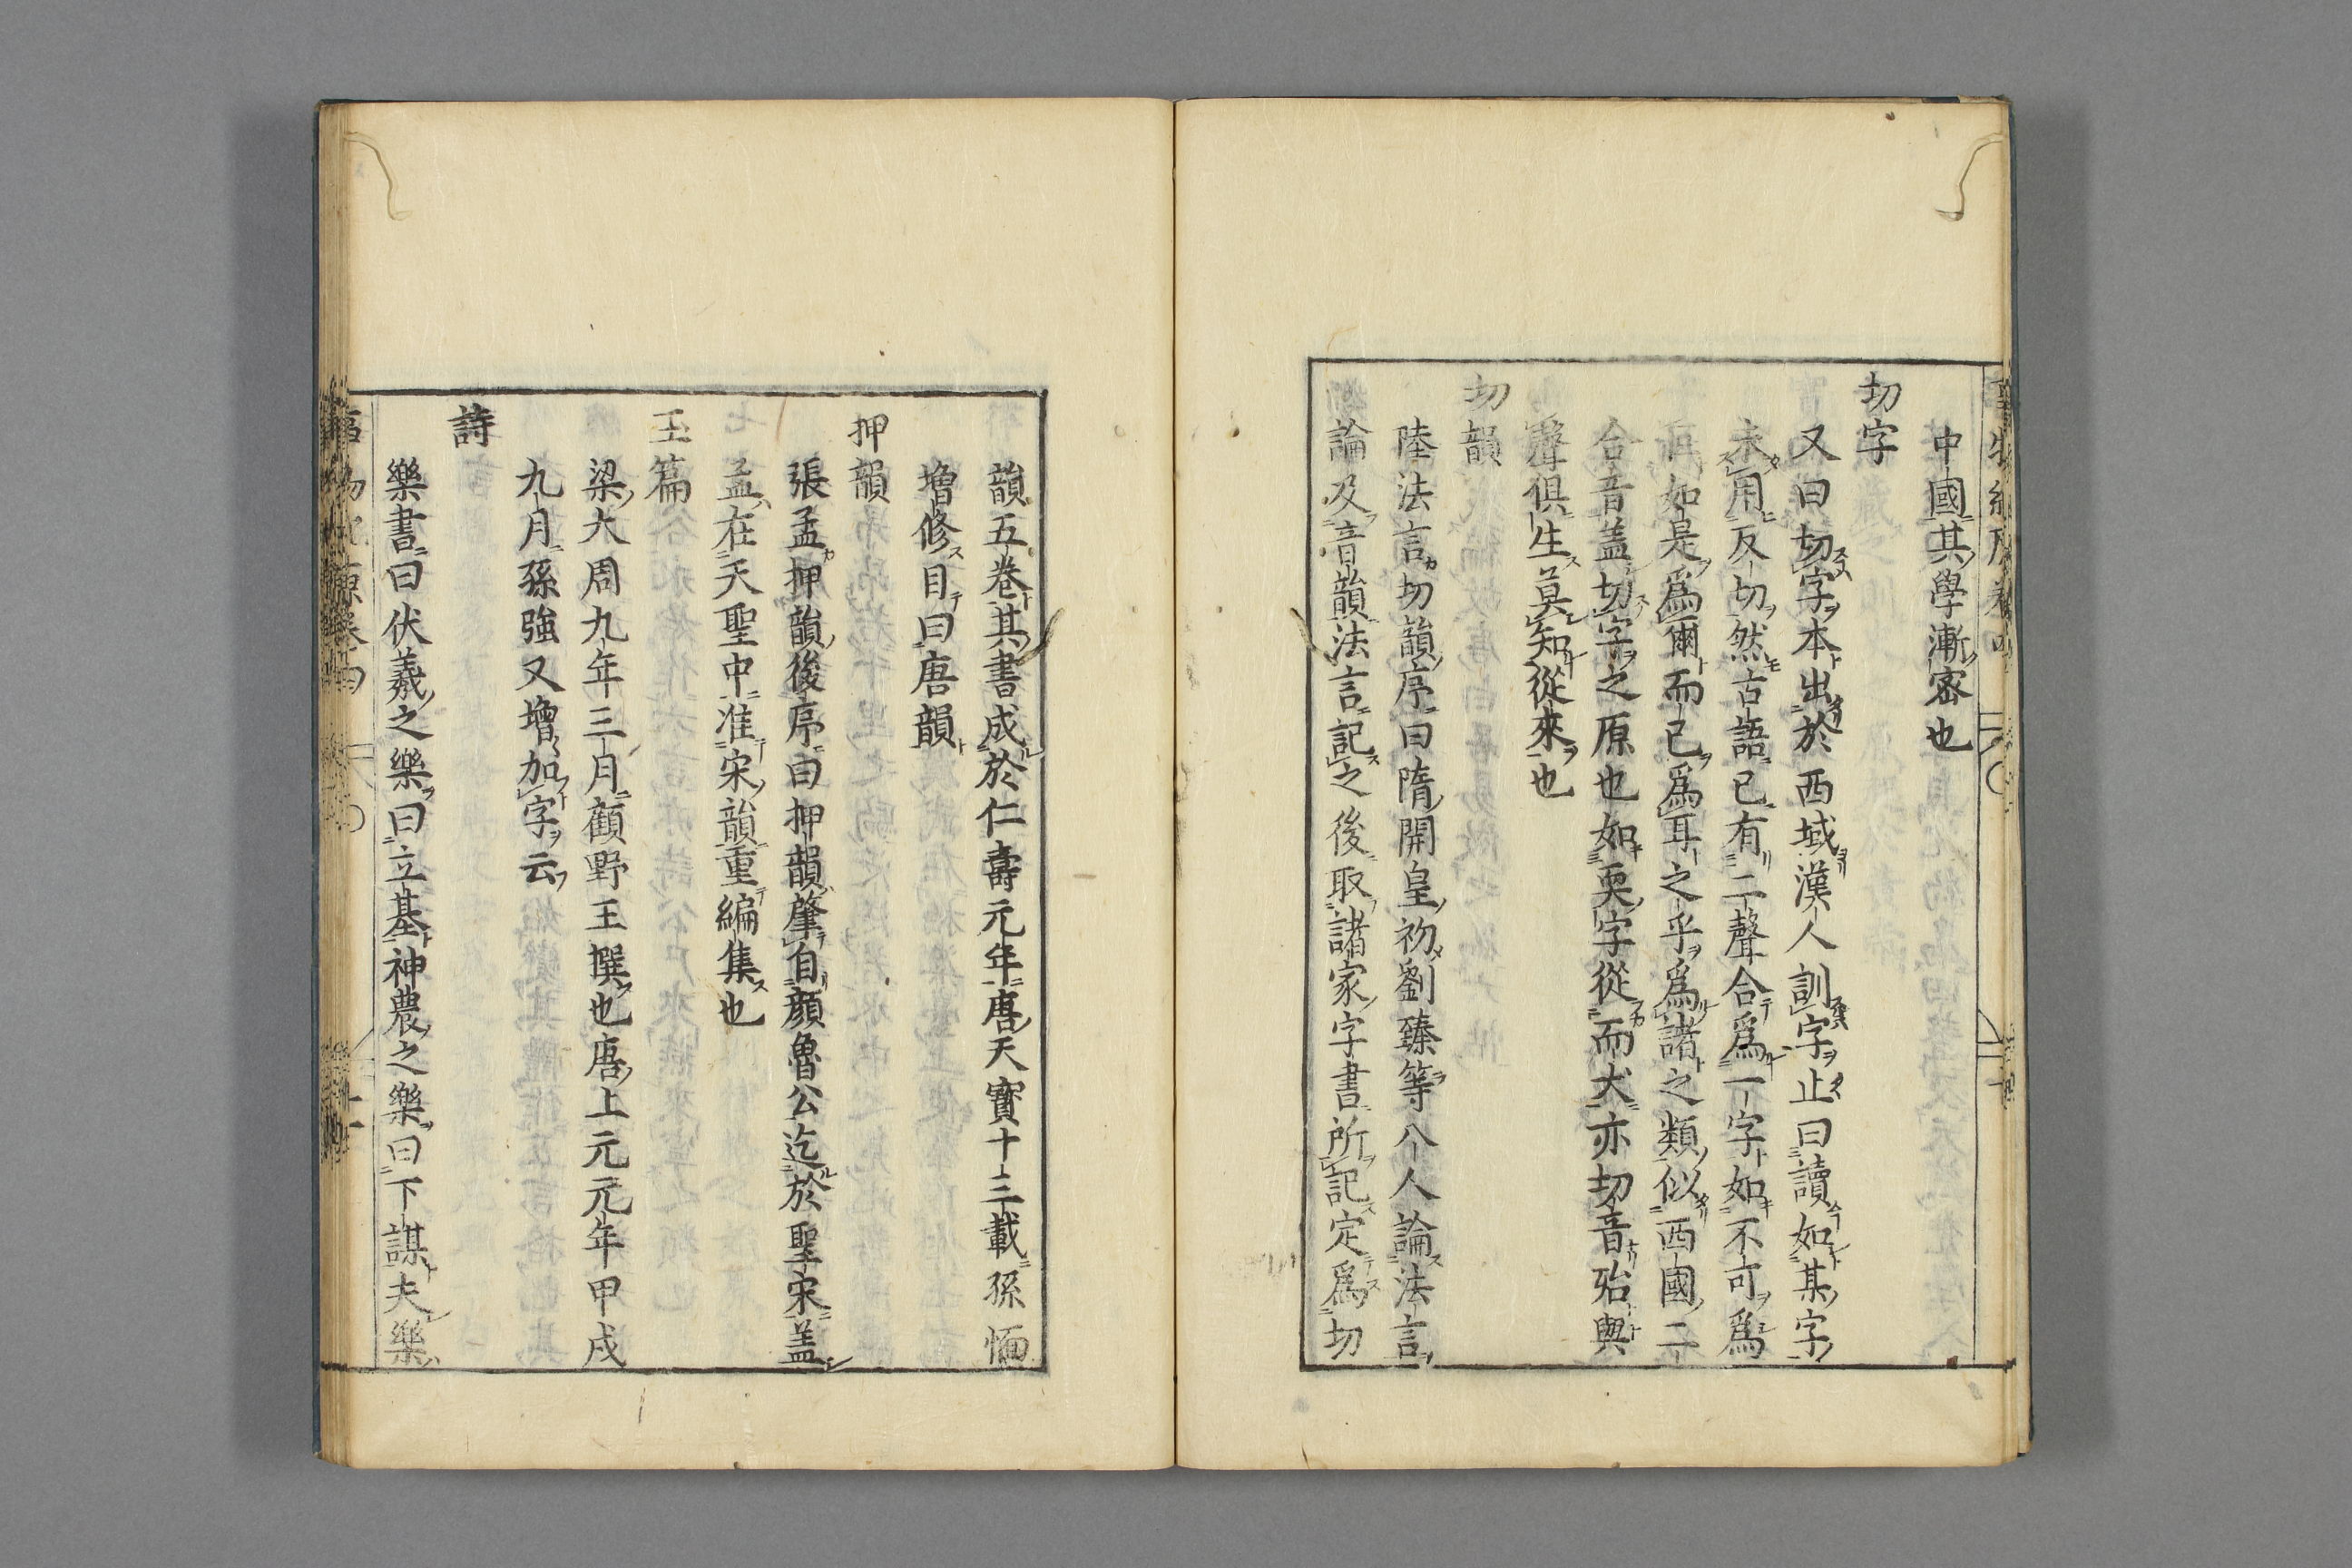 中國其學漸密也
切字
又曰切字本出於西域漢人訓字止曰讀如某字
未用反切然古語已有二聲合爲一字如不可爲
叵如是爲爾而已爲耳之乎爲諸之類似西國二
合音盖切字之原也如耎字從而犬亦切音殆與
聲俱生莫知從來也
切韻
陸法言切韻序曰隋開皇初劉臻等八人論法言
論及音韻法言記之後取諸家字書所記定爲切
韻五卷其書成於仁壽元年唐天寶十三載孫愐
增修目曰唐韻
押韻
張孟押韻後序曰押韻肇自顔魯公迄於聖宋盖
孟在天聖中准宋韻重編集也
王篇
梁大周九年三月顧野王撰也唐上元元年甲戌
九月孫強又增加字云
詩
樂書曰伏羲之樂曰立基神農之樂曰下謀夫樂